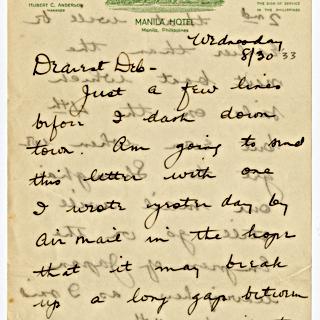 HUBERT C. ANDERSON
MANAGER
MANILA HOTEL
Manila, Philippines
THE SIGN OF SERVICE
IN THE PHILIPPINES
Wednesday
8/30 33
Dearest Deb-
Just a few lines
before I dash down
town. Am going to send
this letter with one
I wrote yesterday by
air mail in the hope
that it may break
up a long gap between